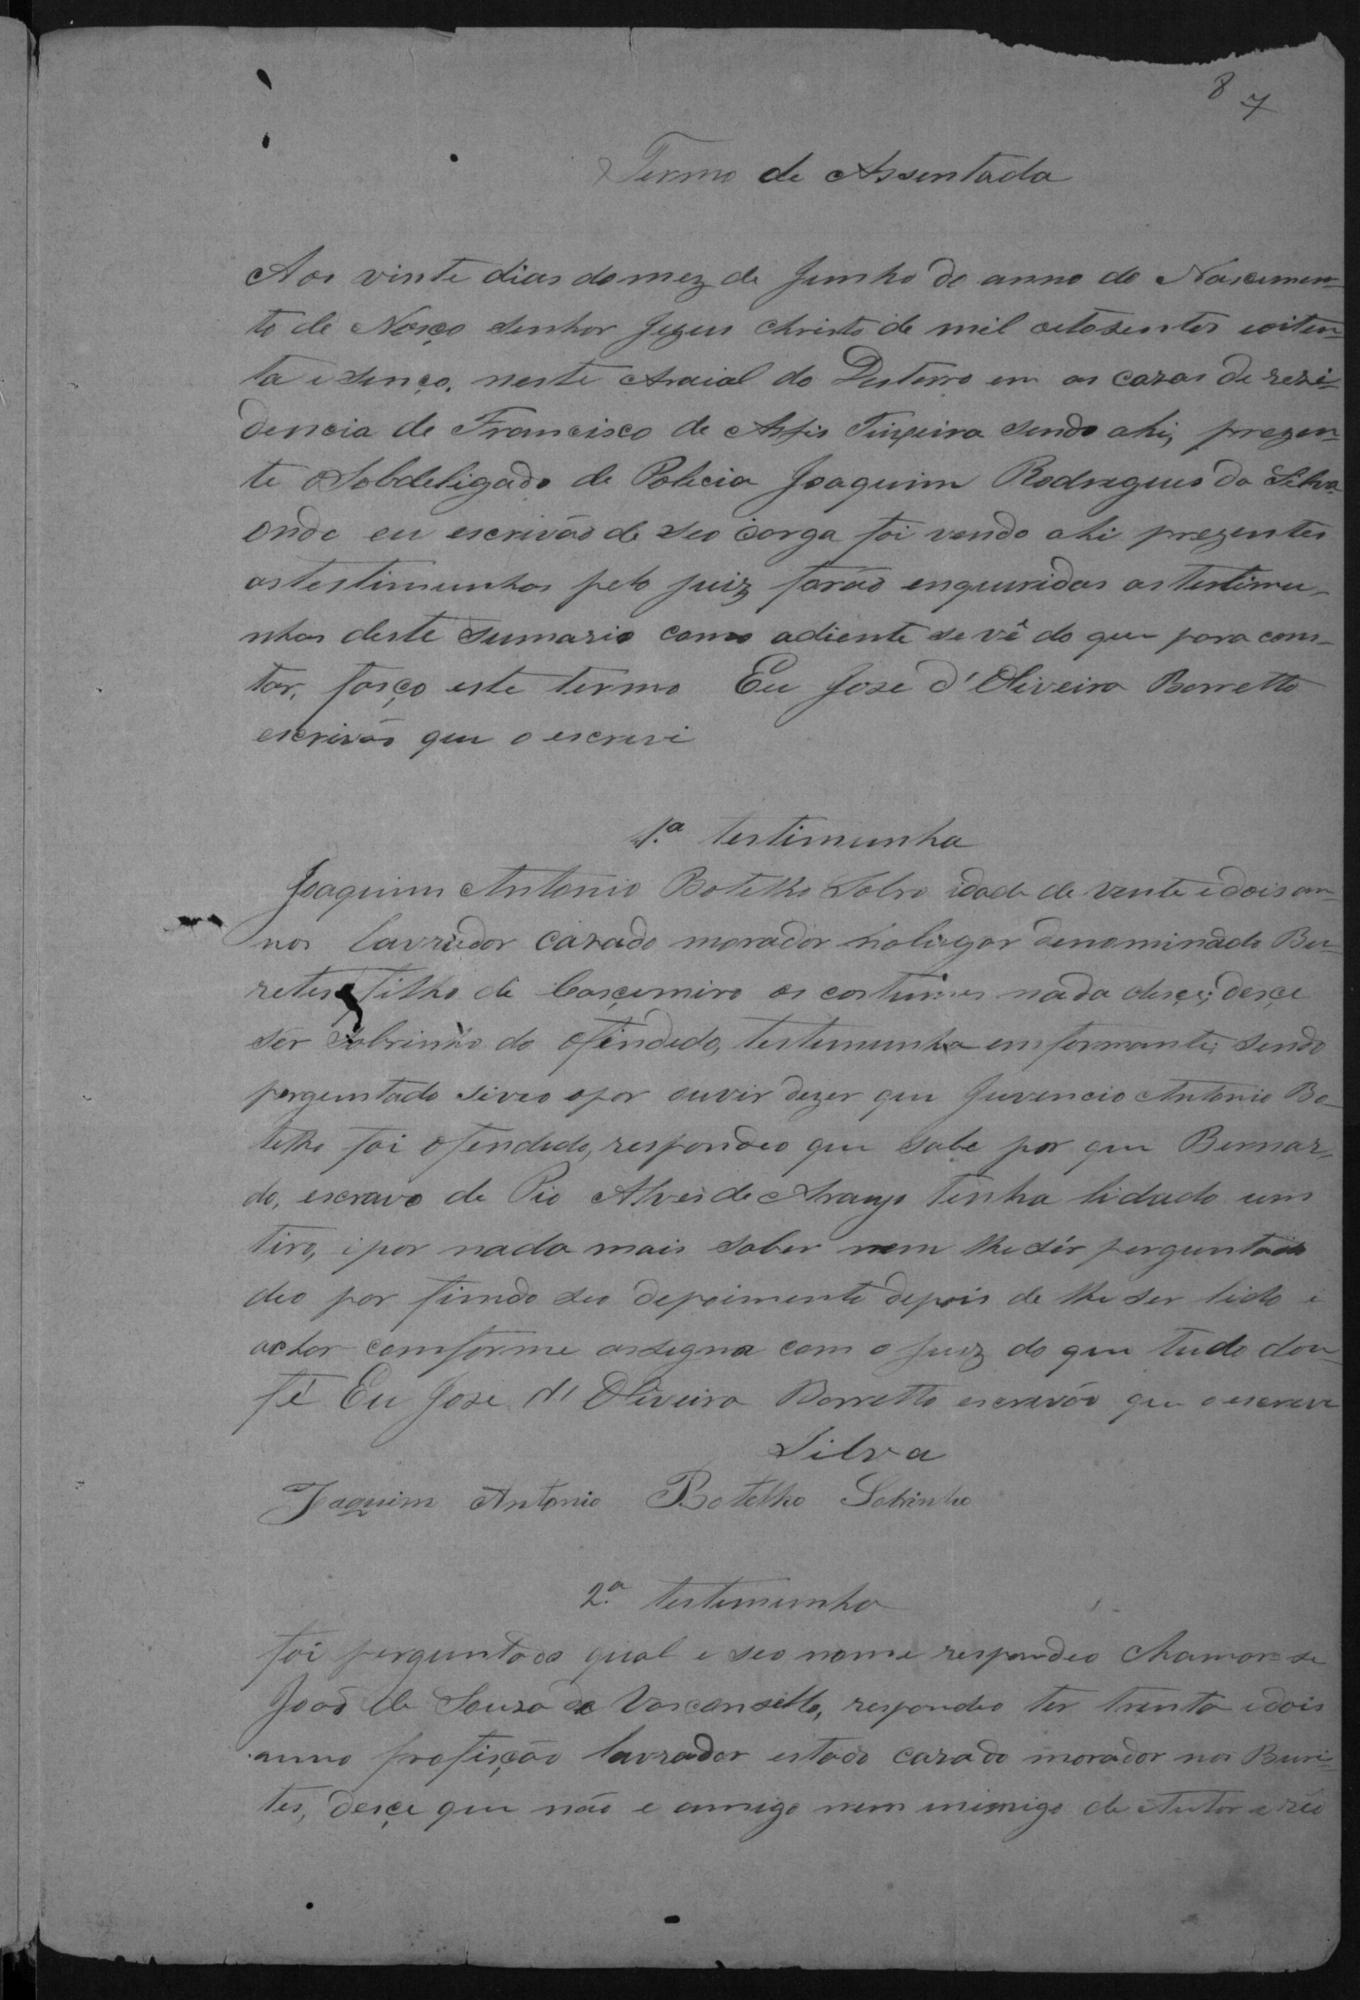 8 7
Termo de Assentada
Aos vinte dias do mez de Junho do anno do Nascimen-
to de Nosço Senhor Jezus Christo de mil oitosentos eoiten-
ta e sinço, neste Araial do Desterro em as cazas de rezi-
dencia de Francisco de Assis Teixeira sendo ahi, prezen-
te o Sobdeligado de Policia Joaquim Rodrigues da Silva
onde eu escrivão de seo cargo foi vendo ahi prezentes
as testimunhas pelo juiz forão enquiridas as testimu-
nhas deste sumario como adiente se vê do que para cons-
tar, fasço este termo Eu Joze d'Oliveira Barretto
escrivão que o escrevi
1.ª testimunha
Joaquim Antonio Botelho Sobro idade de vente e dois an-
nos lavrador cazado morador no lugar denominado Bu-
retes filho de Casçemiro os costumes nada desçe; desçe
ser sobrinho do ofendido, testemunha enformante; sendo
perguntado si veo o por ouvir dizer que Juvencio Antonio Bo-
telho foi ofendido, respondeo que sabe por que Bernar-
do, escravo de Pio Alves de Araujo tinha lidado um
tiro, e por nada mais saber nem lhe sêr perguntado
deo por findo seo depoimento depois de lhe ser lido e
achar comforme assigna com o juiz do que tudo dou
fé Eu Joze d'Oliveira Barretto escrivão que o escrevi
Silva
Joaquim Antonio Botelho Sobrinho
2.ª testemunha
foi perguntado qual e seo nome respondeo chamar se
João de Souza de Vasconsello, respondeo ter trinta e dois
anno profisção lavrador estado cazado morador nos Buri-
tes, desçe que não e amigo nem inimigo de Autor e réo